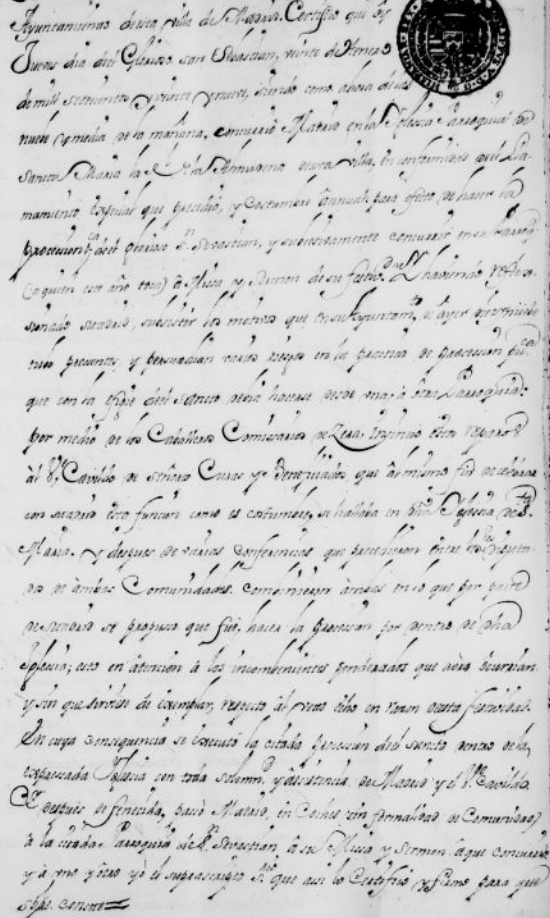 Ayuntamiento desta villa de Madrid. Certifico que oy
Jueves dia del Glorioso san Sebastian, veinte de Henero
de mill setecientos y veinte y nueve, siendo como ahora de las
nueve y media de la mañana, concurrió Madrid en la Iglesia Parroquial de
Santa Maria la Rl de la Almudena desta villa, en conformidad del Lla
mamiento especial que precedio, y costumbre annual para efecto de hacer la
procession del glorioso Sn Sebastian, y subcesivamente concurrir en su Parroq
(a quien este año toca) a Missa y Sermon de su festiv. Y haviendo reflex
sionado Madrid, subsistir los motivos que en su Ayuntamto de ayer
tubo presentes, y persuadian varios riesgos en la practica de procession pca
que con la efigie del Santo devia hacerse desde una, a otra Parroquia:
por medio de los Cavalleros Comisarios de Zera. Insinuó estos reparos
al Ve Cavildo de Señores Curas y Beneficiados, que al mismo fin de celebrar
con Madrid esta funcion como es costumbre, se hallava en dha Iglesia de Sta
Maria. Y despues de varias conferencias que precedieron entre los Diputa
dos de ambas Comunidades. combinieron ambas en lo que por parte
de Madrid se propuso que fué, hacer la procession por dentro de dha
Iglesia; esto en atencion a los incombenientes ponderados que aora ocurrian
y sin que sirviese de exemplar, respecto al en razon desta festividad.
En cuya consequencia se executó la citada procession del Santo dentro de la
expressada Iglesia con toda solemnd y asistencia de Madrid y el Ve Cavildo
Y despues de fenecida, passó Madrid, en Coches (sin formalidad de Comunidad)
a la citada Parroquia de Sn Sevastian a su Missa y Sermon a que concurrio
y a uno y otro yo el suprascripto Srio que asi lo Certifico y firmo para que